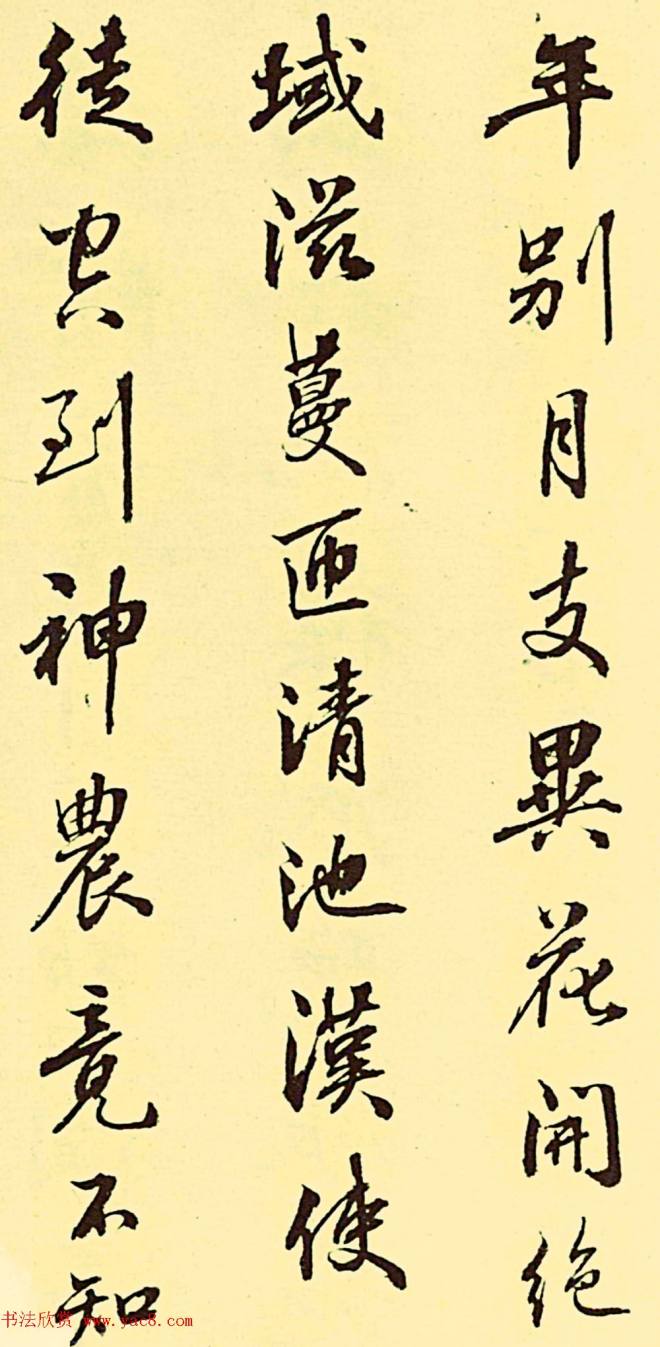 年別月支異花開絶
域滋蔓匝清池漢使
徒空到神農竟不知
书法欣赏 www.yac8.com